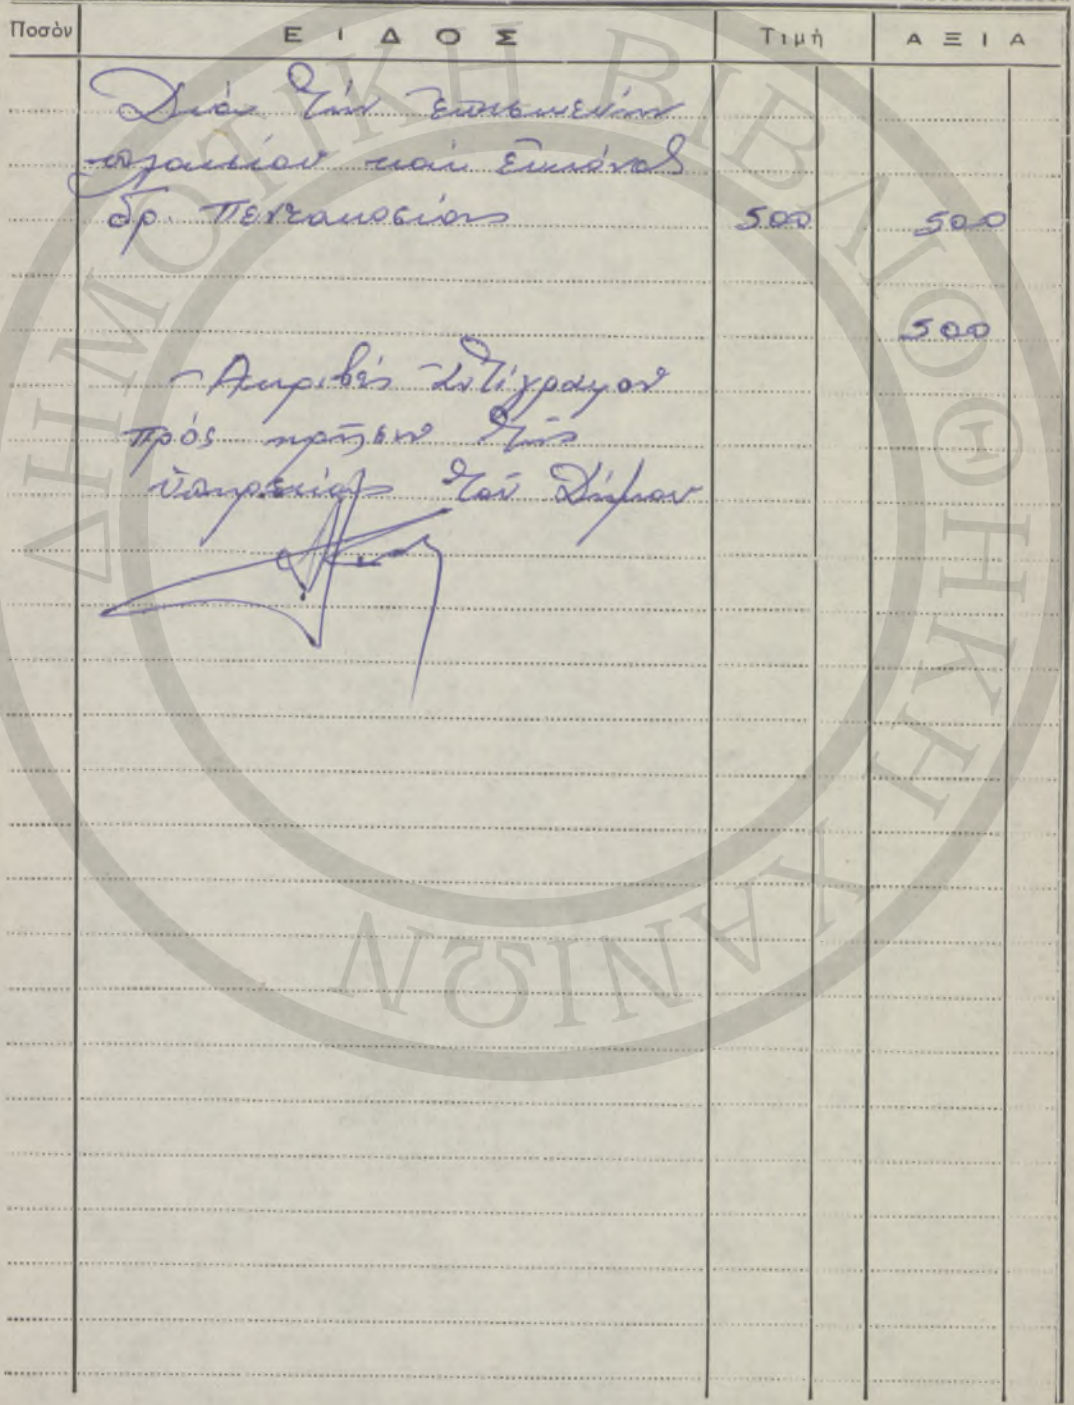 Ποσὸν ΕΙΔΟΣ Τιμὴ ΑΞΙΑ
Διά τήν ἐπισκευήν
πλαισίου καί εἰκόνας
δρ. Πεντακοσίας 500 500
500
Ἀκριβές ἀντίγραφον
πρός χρῆσιν τῆς
ὑπηρεσίας τοῦ Δήμου
ΔΗΜΟΤΙΚΗ ΒΙΒΛΙΟΘΗΚΗ ΧΑΝΙΩΝ